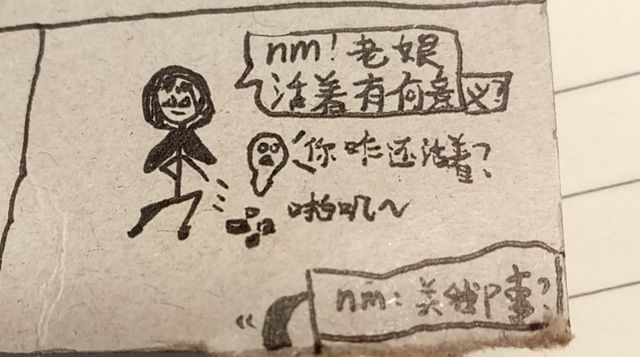 nm！老娘
活着有何意义？
你咋还活着？
啪叽～
nm：关我P事？